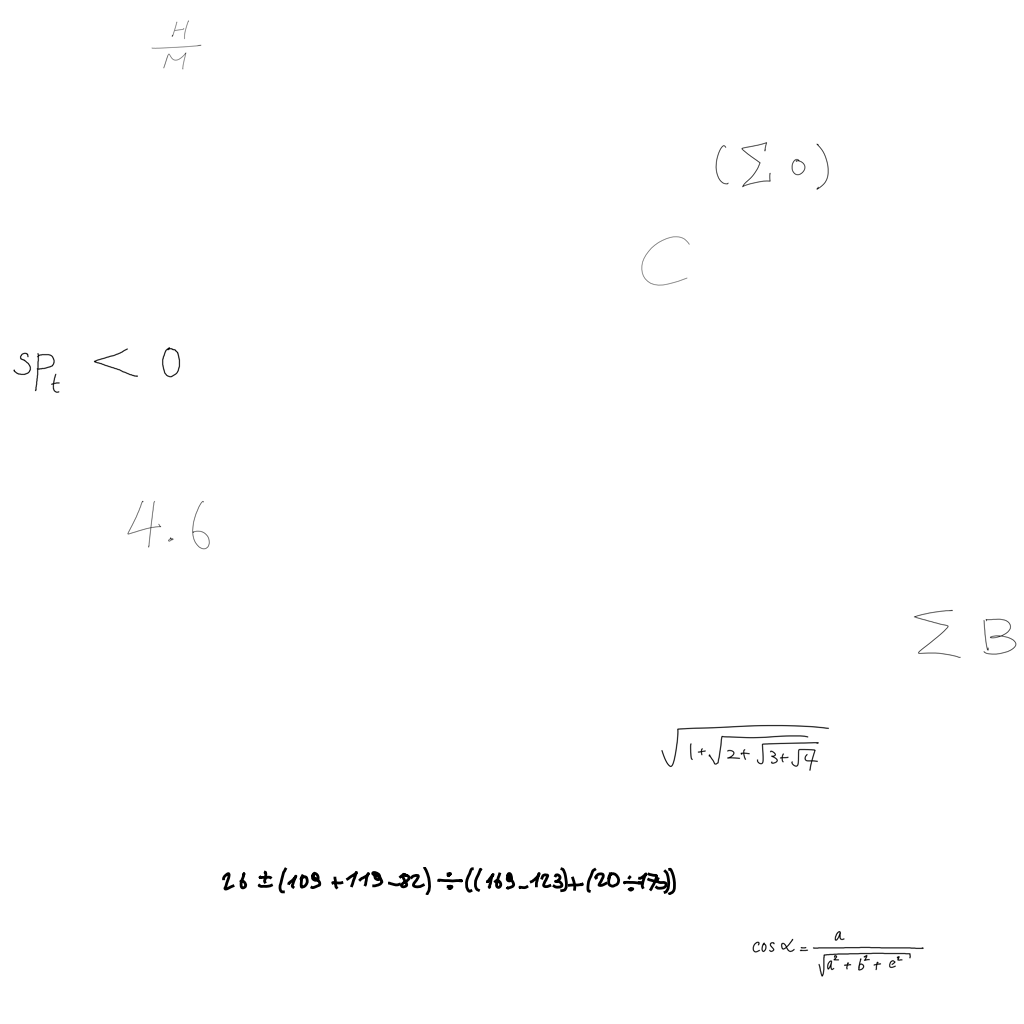 \frac{H}{M}
(Σ 0)
C
sp_t < 0
4.6
Σ B
\sqrt{1+\sqrt{2+\sqrt{3+\sqrt{4}}}}
26 ± (109 + 119 - 82) ÷ ((169 - 123) + (20 ÷ 175))
cos α = \frac{a}{\sqrt{a^2 + b^2 + e^2}}